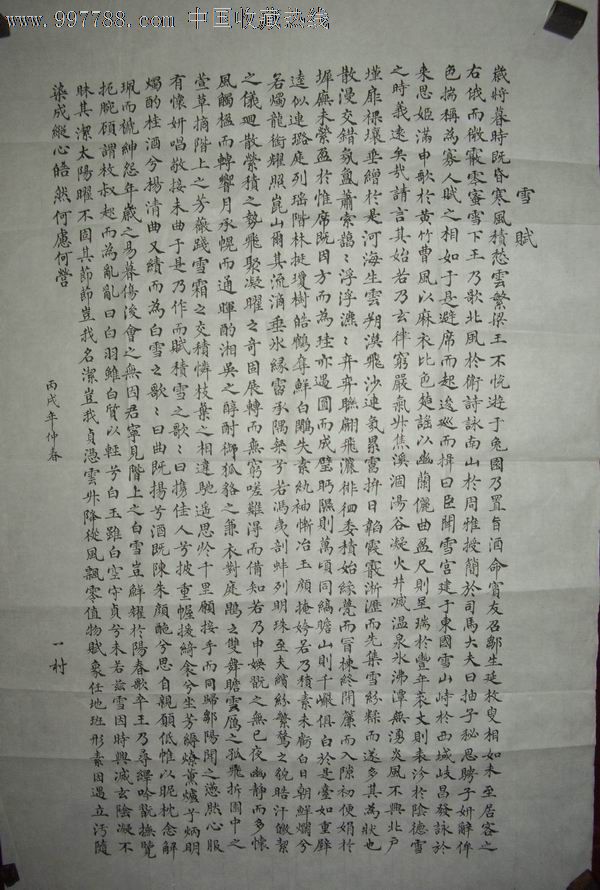 www.997788.com 中国收藏热线
雪賦
歲將暮時既昏寒風積愁雲繁梁王不悅遊于兔園乃置旨酒命賓友召鄒生延枚叟相如未至居客之
右俄而微霰零密雪下王乃歌北風於衛詩詠南山於周惟授簡於司馬大夫曰抽子秘思騁子妍辭侔
色揣稱為寡人賦之相如于是避席而起逡巡而揖曰臣聞雪宮建于東國雪山峙於西域岐昌發詠於
來思姬滿申歌於黃竹曹風以麻衣比色楚謠以幽蘭儷曲盈尺則呈瑞於豐年袤丈則表沴於陰德雪
之時義遠矣哉請言其始若乃玄律窮嚴氣升焦溪涸湯谷凝火井滅温泉冰沸潭無湧炎風不興北戶
墐扉裸壤垂繒於是河海生雲朔漠飛沙連氣累靄揜日韜霞霰淅瀝而先集雪紛糅而遂多其為狀也
散漫交錯氛氳蕭索藹〻浮浮瀌〻弈弈聯翩飛灑徘徊委積始緣甍而冒棟終開簾而入隙初便娟於
墀廡末縈盈於惟席既因方而為珪亦遇圓而成璧眄隰則萬頃同縞瞻山則千巖俱白於是臺如重璧
逵似連璐庭列瑤階林挺瓊樹皓鶴奪鮮白鷳失素紈袖慚冶玉顏掩姱若乃積素未虧白日朝鮮爛兮
若燭龍銜耀照崑山爾其流滴垂冰緣霤承隅粲兮若馮夷剖蚌列明珠至夫繽紛繁騖之貌皓汗皦絜
之儀迴散縈積之勢飛聚凝曜之奇固展轉而無窮嗟難得而備知若乃申娛翫之無已夜幽靜而多懷
風觸楹而轉響月承幌而通暉酌湘吳之醇酎御狐貉之兼衣對庭鵾之雙舞瞻雲雁之孤飛折園中之
萱草摘階上之芳薇踐雪霜之交積憐枝葉之相違馳遥思於千里願接手而同歸鄒陽聞之懣然心服
有懷妍唱敬接末曲于是乃作而賦積雪之歌〻曰攜佳人兮披重幄援綺衾兮坐芳縟燎薰爐兮炳明
燭酌桂酒兮揚清曲又續而為白雪之歌〻曰曲既揚兮酒既陳朱顏酡兮思自親願低帷以昵枕念解
珮而褫紳怨年歲之易暮傷後會之無因君寧見階上之白雪豈鮮耀於陽春歌卒王乃尋繹吟翫撫覽
扼腕顧謂枚叔起而為亂亂曰白羽雖白質以輕兮白玉雖白空守貞兮未若茲雪因時興滅玄陰凝不
昧其潔太陽曜不固其節節豈我名潔豈我貞憑雲升降從風飄零值物賦象任地班形素因遇立污隨
染成縱心皓然何慮何營
丙戌年仲春
一村